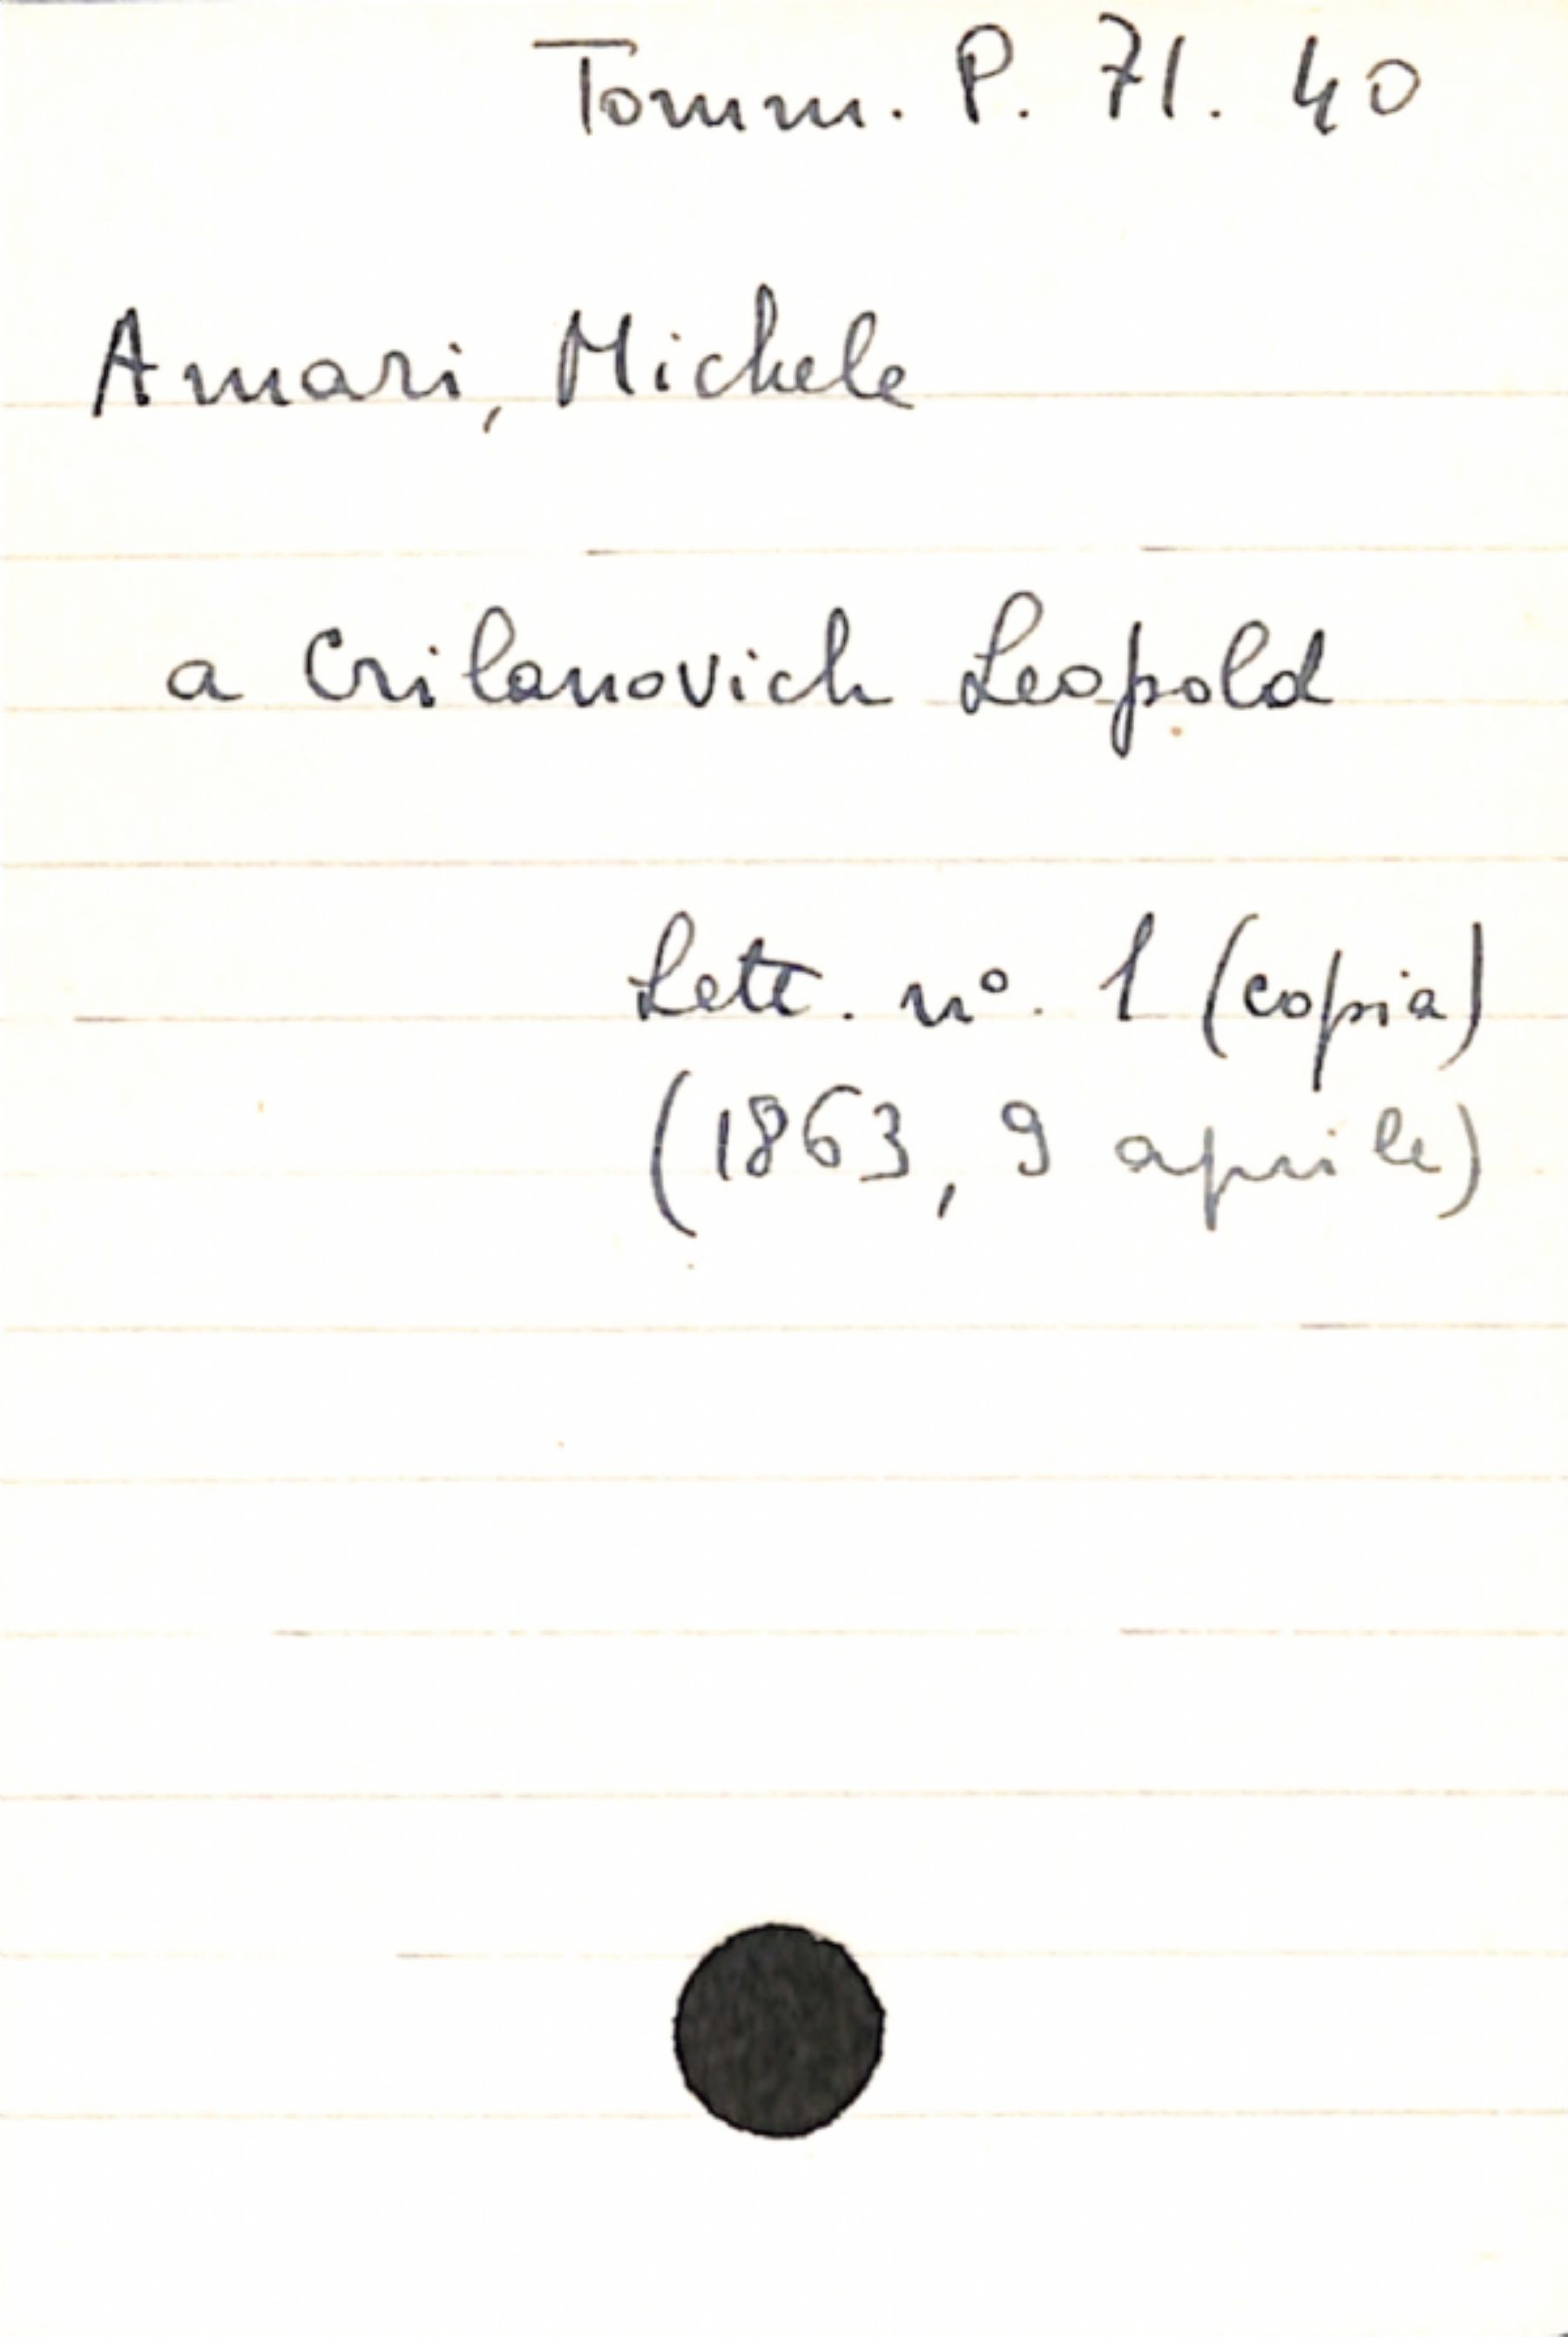 Tomm. P. 71. 40
Amari, Michele
a Crilanovich Leopold
Lett. n°. 1 (copia)
(1863, 9 aprile)